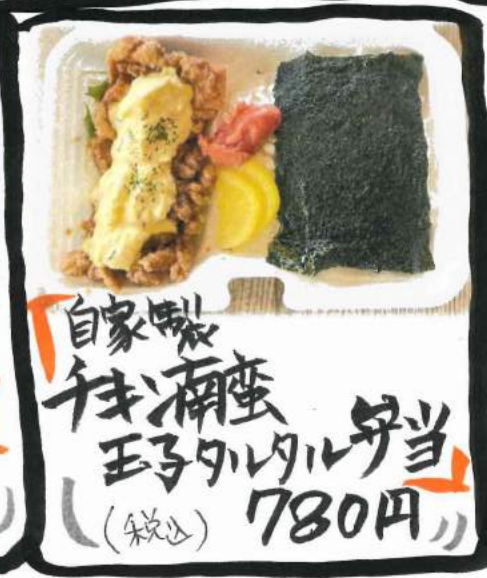 「自家製
チキン南蛮
王子タルタル弁当」
(税込) 780円